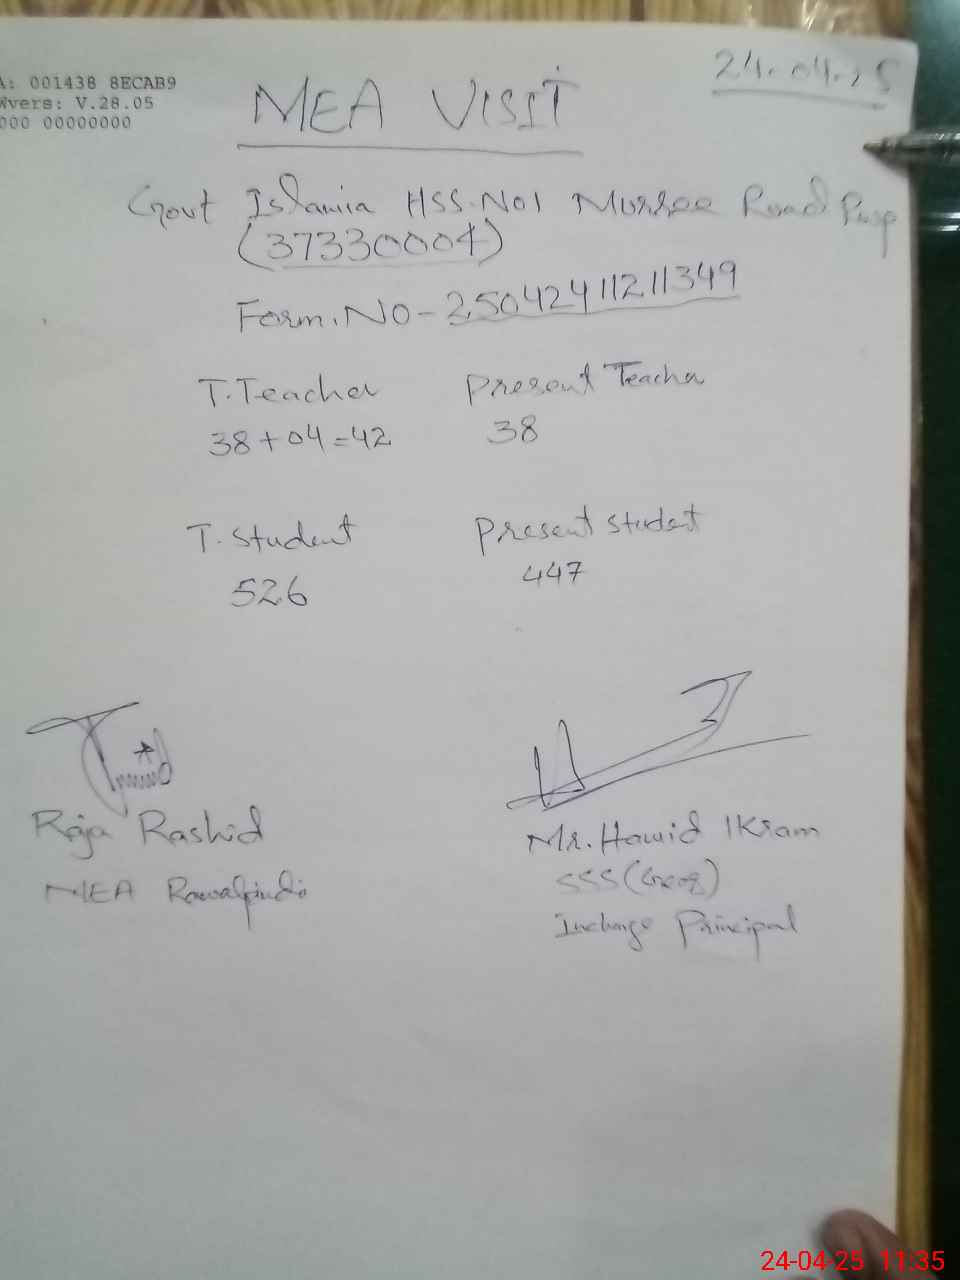 A: 001438 8ECAB9
Wvers: V.28.05
000 00000000
24.04.25
MEA VISIT
Govt Islamia HSS.NO1 Murree Road Rwp
(37330004)
Form.NO-25042411211349
T.Teacher Present Teacher
38+04=42 38
T.Student Present Student
526 447
Raja Rashid Mr.Hamid Ikram
MEA Rawalpindi SSS(Geog)
Incharge Principal
24-04-25 11:35